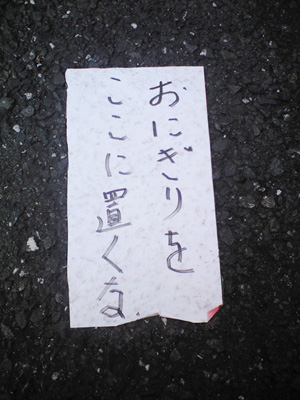 おにぎりを
ここに置くな